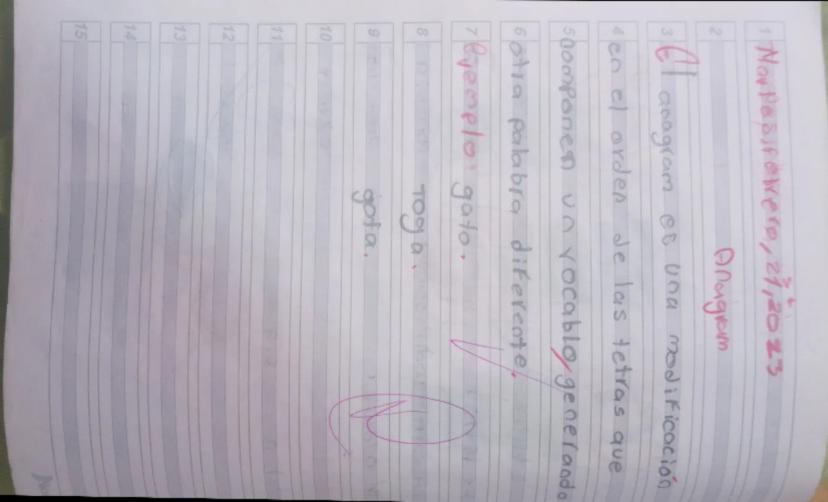 1 Martes, febrero, 21, 2023
2 Anagram
3 El anagram es una modificación
4 en el orden de las tetras que
5 componen un vocablo, generando
6 otra palabra diferente.
7 Ejemplo: gato.
8 roga.
9 gota.
10
11
12
13
14
15